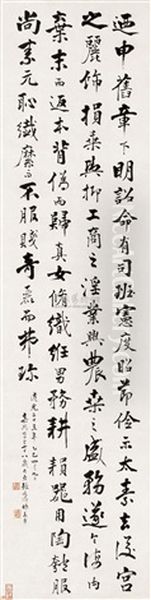 迺申舊章下明詔命有司班憲度昭節儉示太素去後宮
之麗飾損乘輿抑工商之淫業興農桑之盛務遂令海內
棄末而返本背偽而歸真女脩織紝男務耕耘器用陶匏服
尚素元恥纖靡而不服賤奇麗而弗珍
道光廿五年乙巳
七十八歲